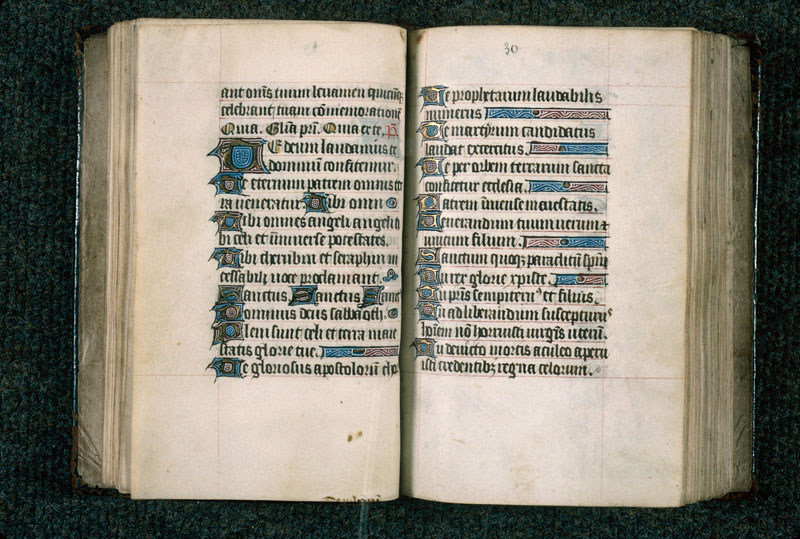 30
ant om̄s tuum levamen quicūq;
celebrant tuam cōmemorationē
Quia. Glīa prī. Quia ex te. p̄
Te deum laudamus te
dominum confitemur.
Te eternum patrem omnis ter
ra veneratur. Tibi omn
Tibi omnes angeli angelis
bi celi et universe potestates.
Tibi cherubin et seraphin in
cessabili voce proclamant.
Sanctus. Sanctus. Sanct
Dominus deus sabbaoth.
Pleni sunt celi et terra maie
statis glorie tue.
Te gloriosus apostolorū
Te prophetarum laudabilis
numerus
Te martyrum candidatus
laudat exercitus.
Te per orbem terrarum sancta
confitetur ecclesia.
Patrem īmense maiestatis.
Venerandum tuum verum z
unicum filium.
Sanctum quoqz paraclitū spm̄
Tu rex glorie xpiste.
Tu prīs sempitern⁹ es filius.
Tu ad liberandum suscepturus
hoīem nō horruisti virgīs uterū.
Tu devicto mortis aculeo aperu
isti credentibz regna celorum.